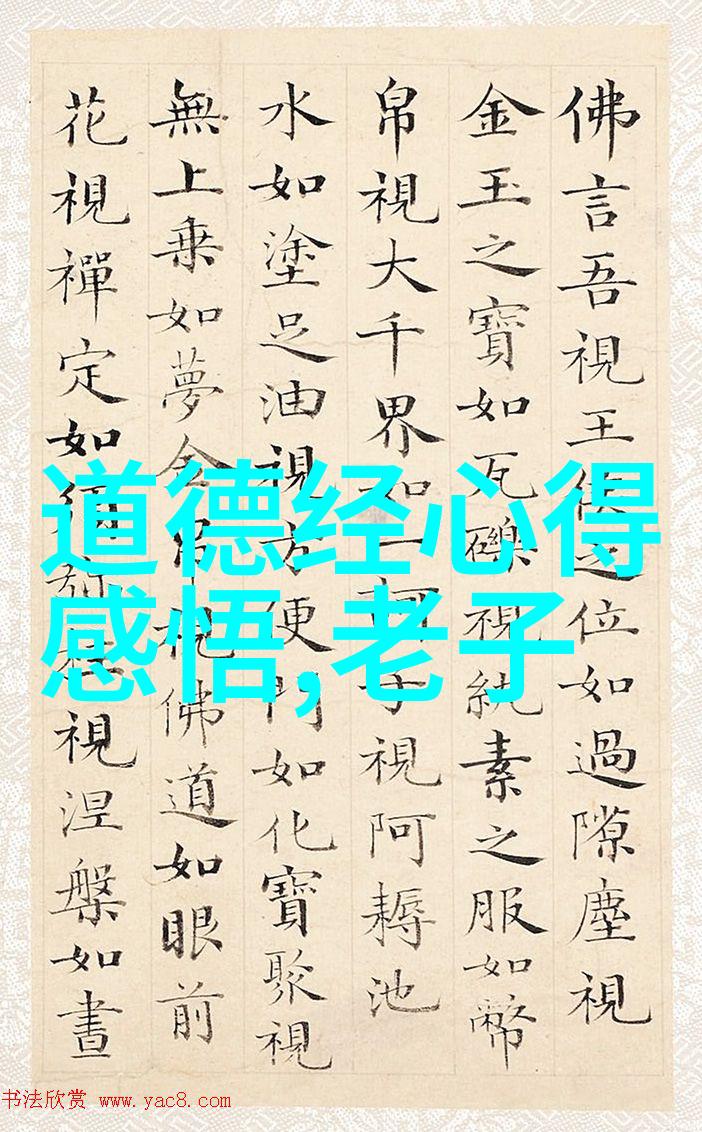 佛言吾視王侯之位如過隙塵視
金玉之寶如瓦礫視紈素之服如幣
帛視大千界如一訶子視阿耨池
水如塗足油視方便門如化寶聚視
無上乗如夢金帛視佛道如眼前
花視禪定如須弥柱視涅槃如晝
道德经心得
感悟,老子
书法欣赏 www.yac8.com